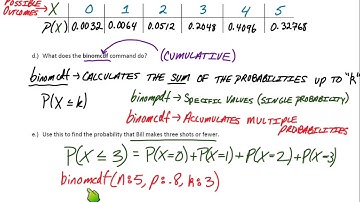 POSSIBLE
OUTCOMES → X 0 1 2 3 4 5
P(X) 0.0032 0.0064 0.0512 0.2048 0.4096 0.32768
d.) What does the binomcdf command do? (CUMULATIVE)
binomcdf → CALCULATES THE SUM OF THE PROBABILITIES UP TO "K"
P(X ≤ k) binompdf → SPECIFIC VALUES (SINGLE PROBABILITY)
binomcdf → ACCUMULATES MULTIPLE
PROBABILITIES
e.) Use this to find the probability that Bill makes three shots or fewer.
P(X ≤ 3) = P(X=0) + P(X=1) + P(X=2) + P(X=3)
binomcdf(n:5, p:.8, k:3)